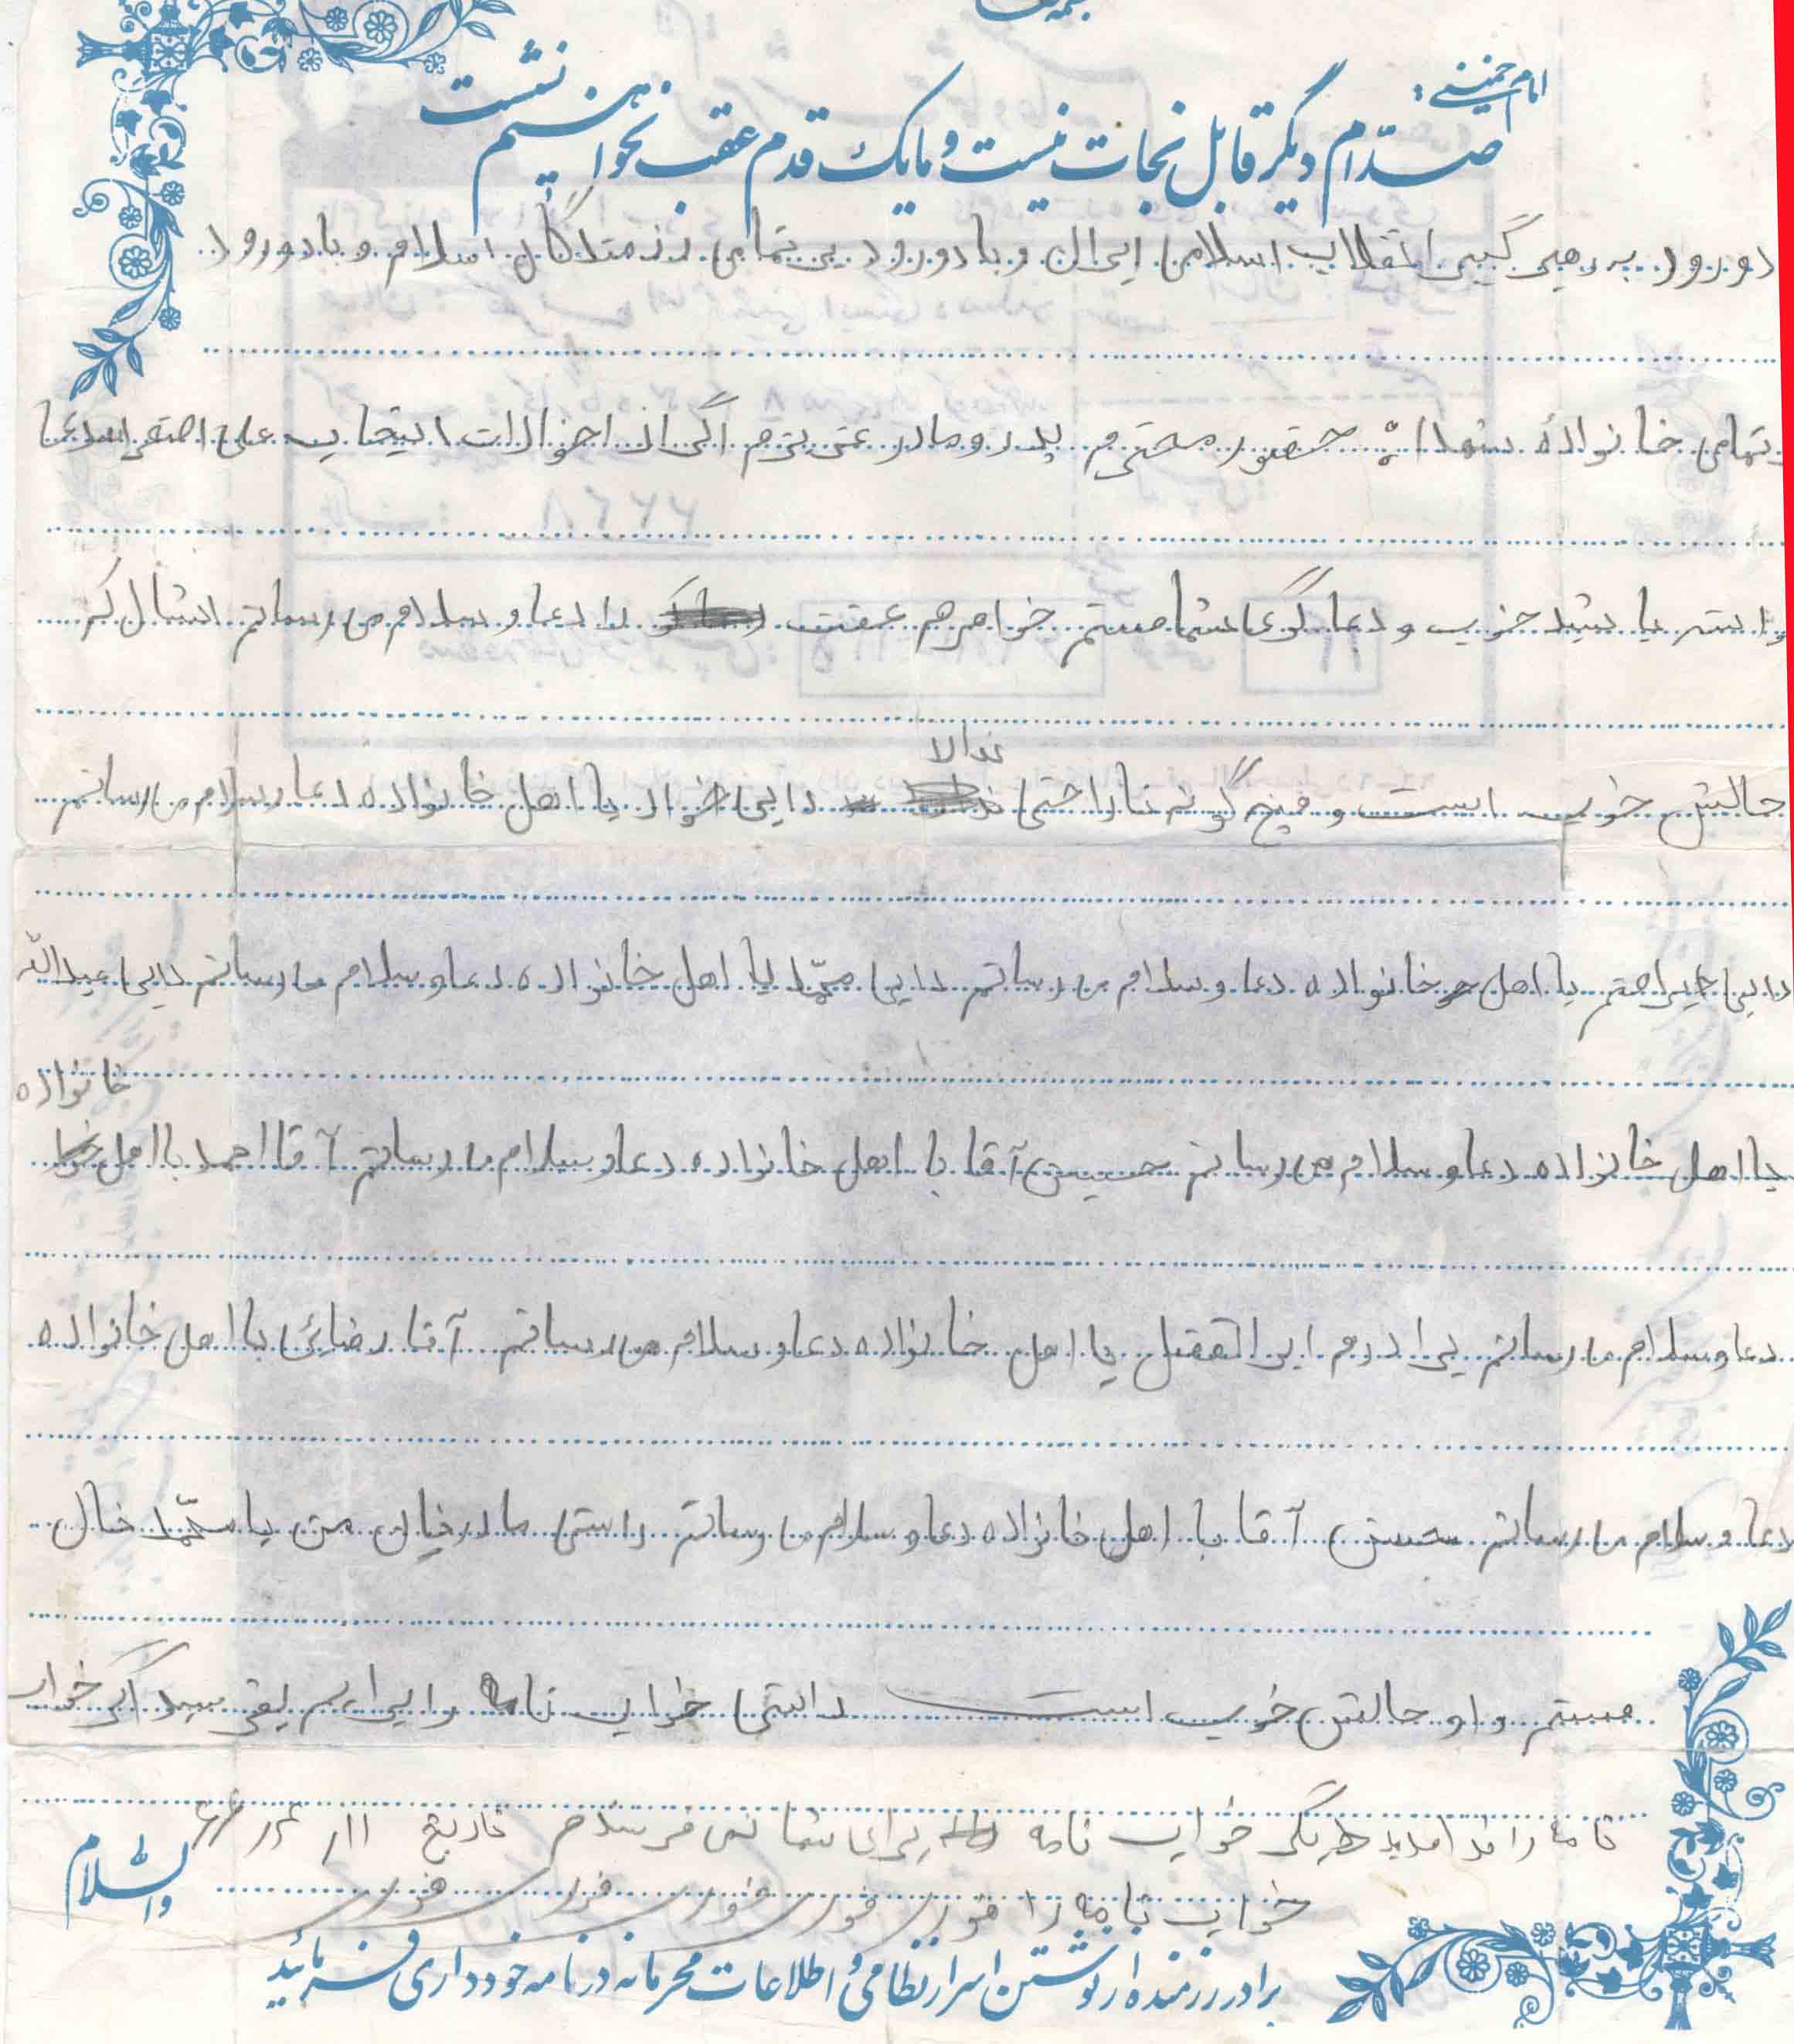 امام خمینی:
صدّام دیگر قابل نجات نیست و ما یک قدم عقب نخواهیم نشست
دورود به رهبر کبیر انقلاب اسلامی ایران و با دورود بی تمامی رزمندگان اسلام و با دورود
بتمامی خانوادهٔ شهدا حضور محترم پدر و مادر عزیزم اگر از احوالات اینجانب علی اصغر
باشید خوب و دعا گوی شما هستم خواهرم عفت را دعا و سلام می رسانم
حالش خوب است و هیچ گونه ناراحتی ندارد دایی با اهل خانواده دعا و سلام می رسانم
دایی با اهل خانواده دعا و سلام می رسانم دایی محمّد با اهل خانواده دعا و سلام می رسانم دایی عبدالله
خانواده
با اهل خانواده دعا و سلام می رسانم حسین آقا با اهل خانواده دعا و سلام می رسانم آقا احمد با اهل
دعا و سلام می رسانم برادرم ابوالفضل با اهل خانواده دعا و سلام می رسانم آقا رضائی با اهل خانواده
دعا و سلام می رسانم آقا با اهل خانواده دعا و سلام می رسانم راستی مادر جان من با محمّد
هستم و او حالش خوب است راستی جواب نامه را برایم بفرسید اگر جواب
نامه را ندادید دیگر جواب نامه برای شما نمی فرسدم تاریخ
جواب نامه را فوری فوری فوری فوری فوری
والسّلام
برادر رزمنده از نوشتن اسرار نظامی و اطلاعات محرمانه در نامه خودداری فرمائید